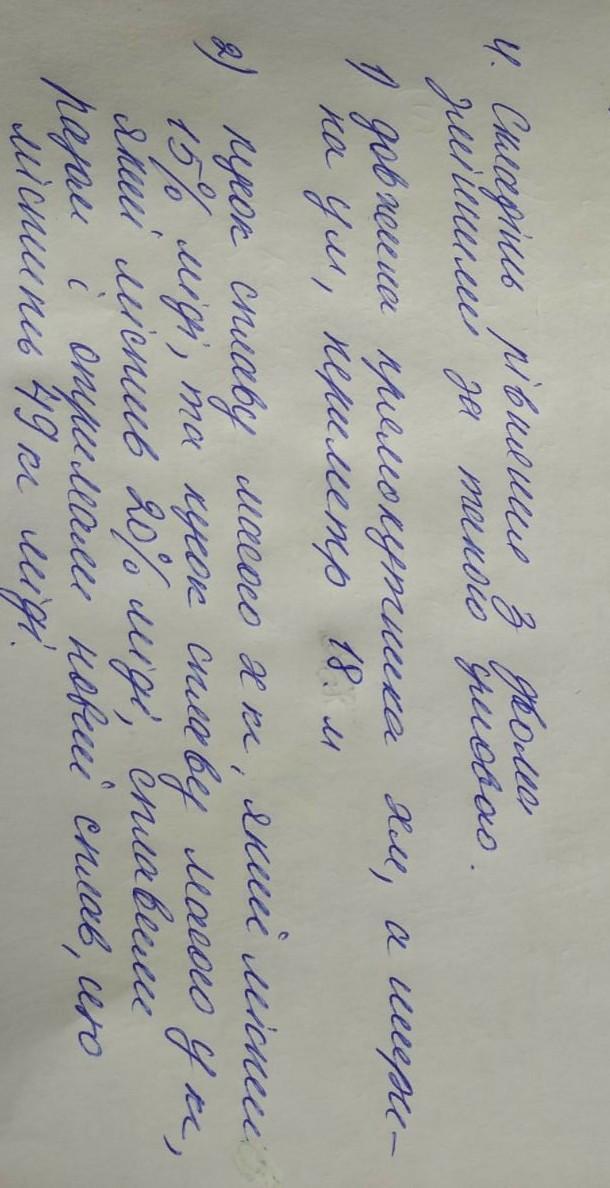 4. Складіть рівняння з двома
змінними за такою умовою.
1) довжина прямокутника х м, а шири-
на у м, периметр 18 м
2) кусок сплаву масою х кг, який містив
15% міді, та кусок сплаву масою у кг,
який містив 20% міді, сплавили
разом і отримали новий сплав, що
містить 49 кг міді.